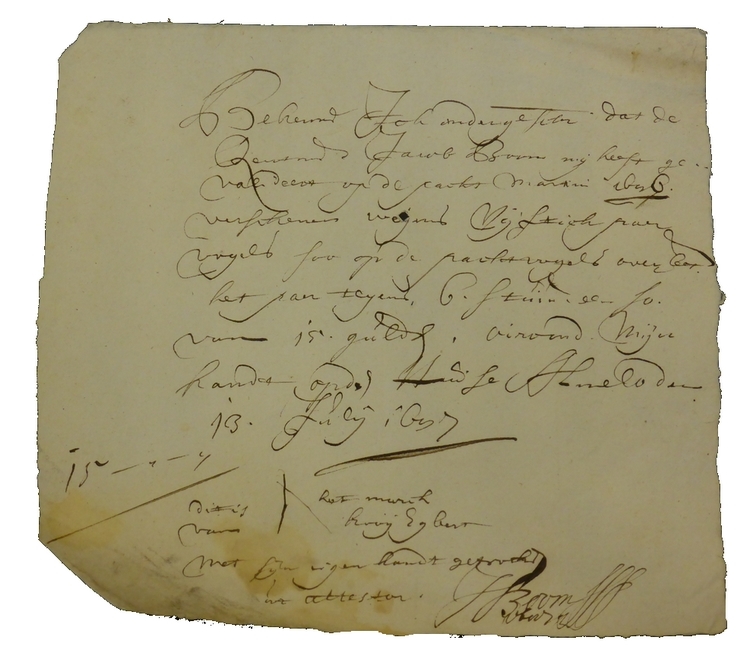 Bekenne Ick ondergesch: dat de
Jacob Boom mij heeft ge-
valideert op de pacht Martini 1696.
verschenen wegens Vijftich paer
vogels soo op de pachtvogels
het paer tegens, 6. stuiv: een so.
van 15. guld, oirconde Mijn
handt op den Huise Almelo den
13. Julij 1697
15 - " - "
dit is het merck
van Egbert
Met sijn eigen handt getrocken
ut attestor. Boom